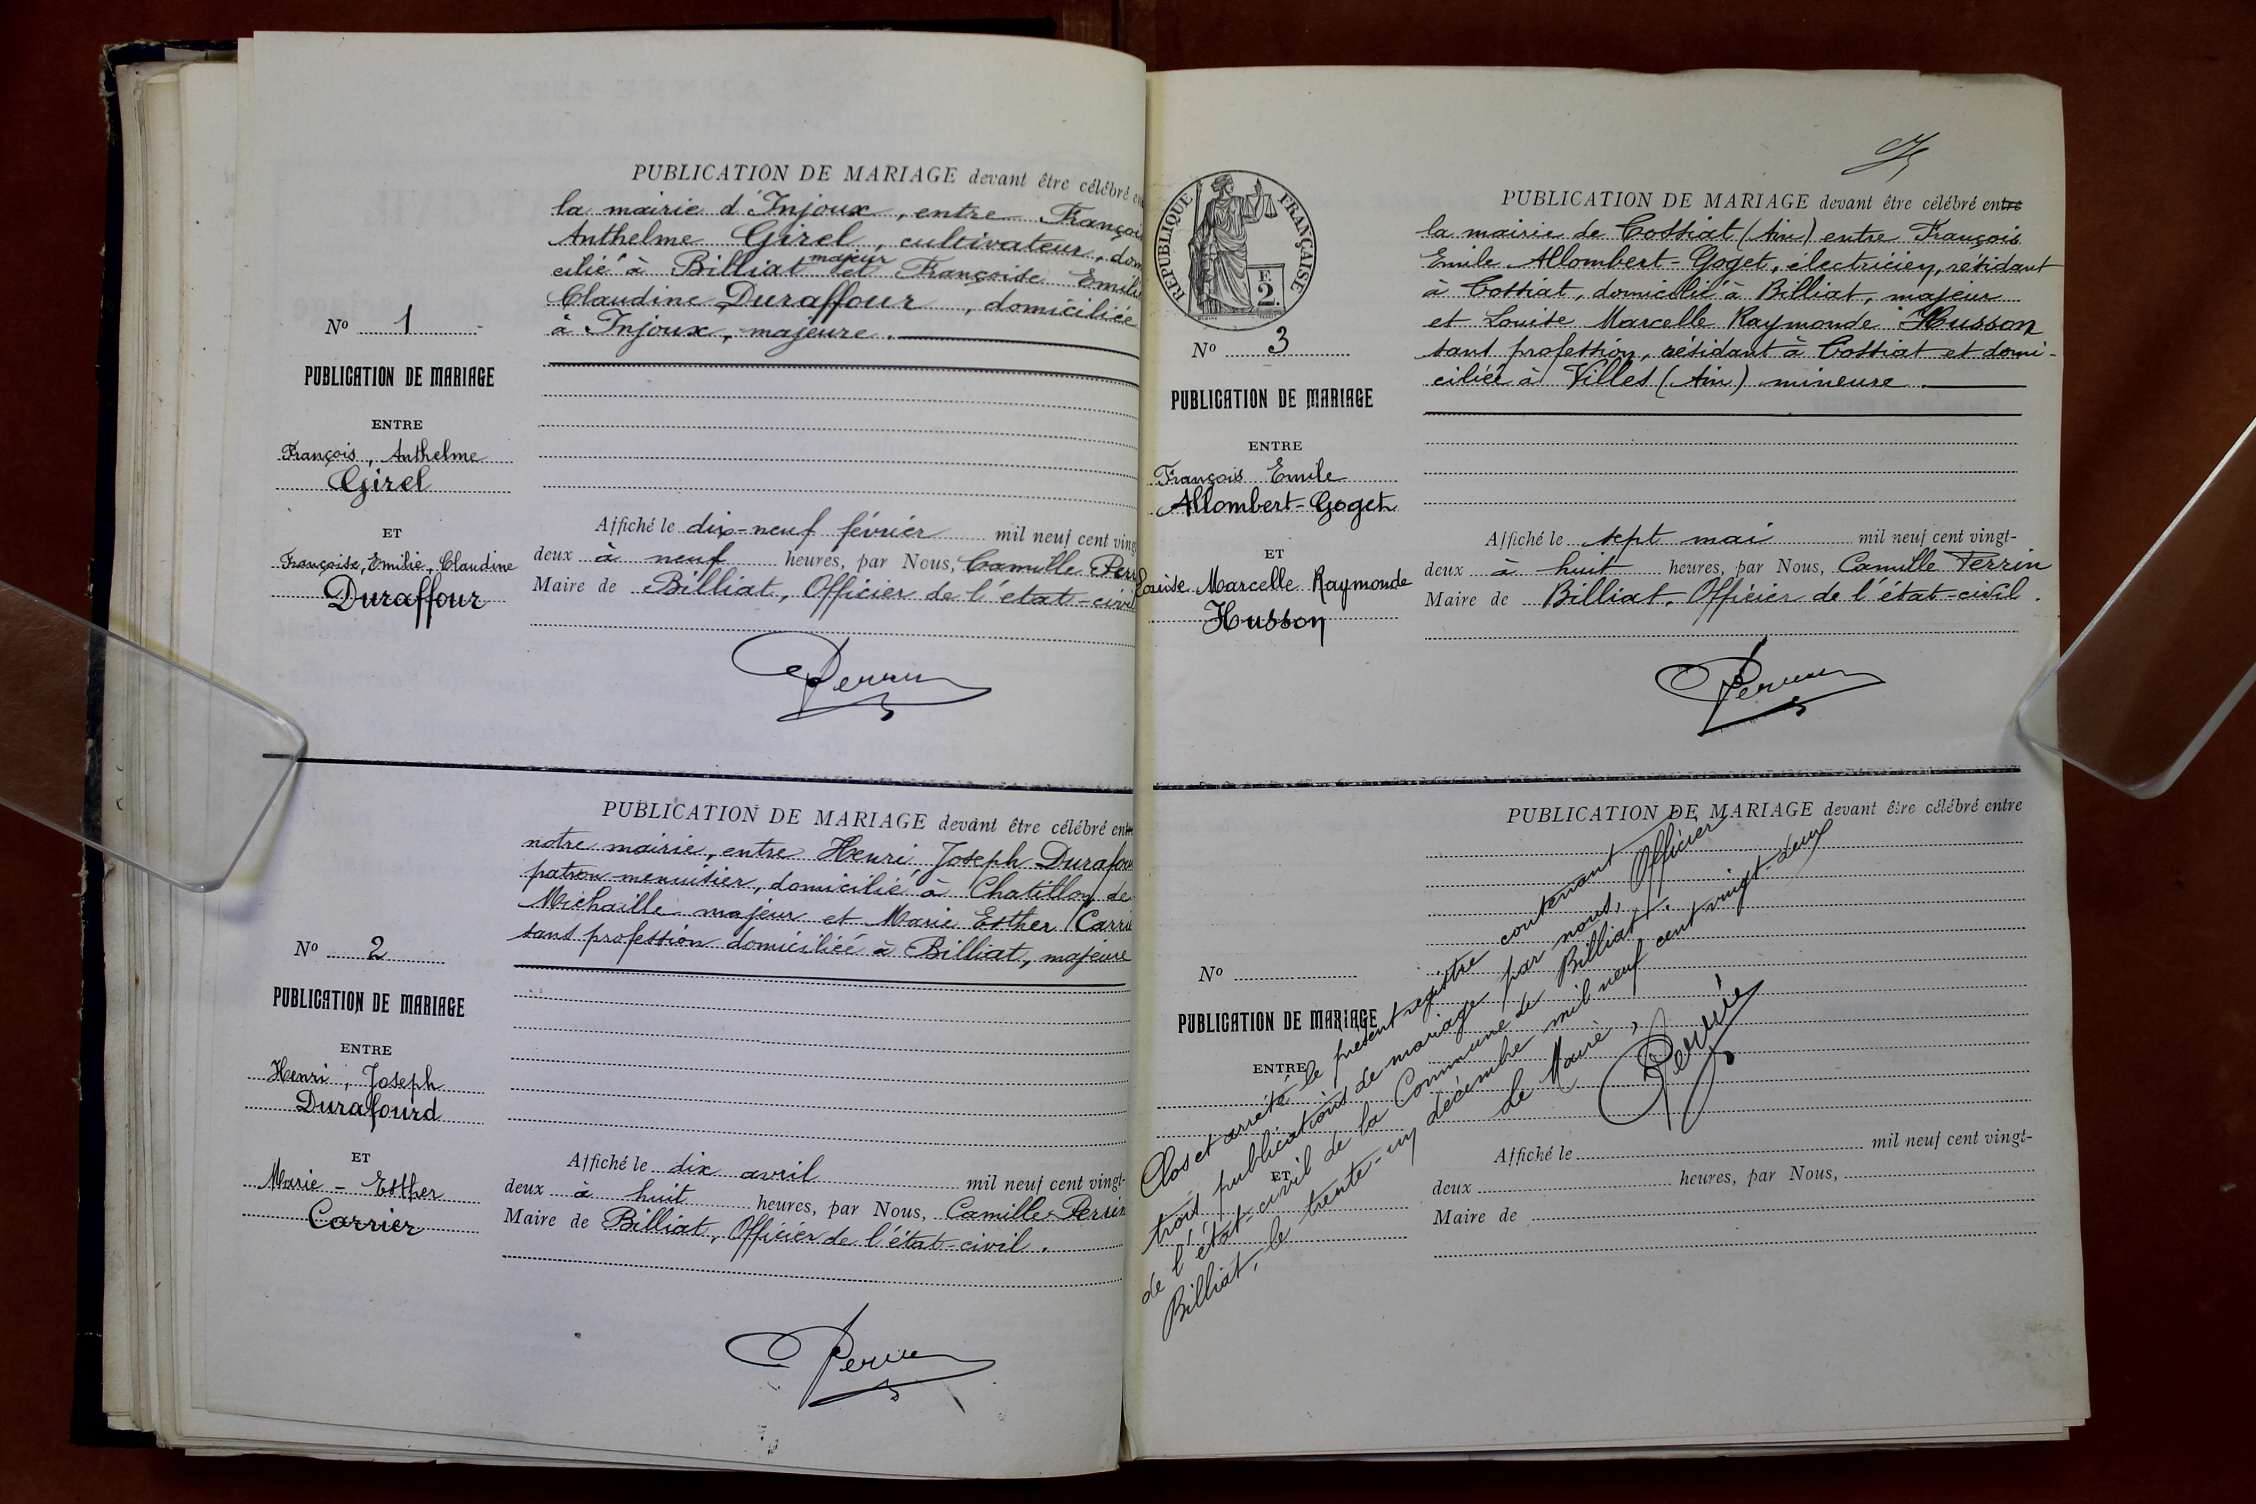 PUBLICATION DE MARIAGE devant être célébré en
la mairie d'Injoux, entre Françoi
Anthelme Girel, cultivateur, dom
cilié à Billiat majeur et Françoise Emilie
Claudine Duraffour, domiciliée
à Injoux, majeure.
Nº 1
PUBLICATION DE MARIAGE
ENTRE
François, Anthelme
Girel
ET
Françoise, Emilie, Claudine
Duraffour
Affiché le dix-neuf février mil neuf cent ving
deux à neuf heures, par Nous, Camille Perr
Maire de Billiat, Officier de l'état-civil
Perrin
PUBLICATION DE MARIAGE devant être célébré entre
notre mairie, entre Henri Joseph Durafou
patron menuisier, domicilié à Chatillon de
Michaille majeur et Marie Esther Carri
sans profession domiciliée à Billiat, majeure
Nº 2
PUBLICATION DE MARIAGE
ENTRE
Henri, Joseph
Durafourd
ET
Marie-Esther
Carrier
Affiché le dix avril mil neuf cent vingt-
deux à huit heures, par Nous, Camille Perrin
Maire de Billiat, Officier de l'état-civil.
Perrin
RÉPUBLIQUE FRANÇAISE
E
2.
PUBLICATION DE MARIAGE devant être célébré entre
la mairie de Cossiat (Ain) entre François
Emile Allombert-Goget, électricien, résidant
à Cossiat, domicilié à Billiat, majeur
et Louise Marcelle Raymonde Husson
sans profession, résidant à Cossiat et domi-
ciliée à Villes (Ain) mineure.
Nº 3
PUBLICATION DE MARIAGE
ENTRE
François Emile
Allombert-Goget
ET
Louise Marcelle Raymonde
Husson
Affiché le sept mai mil neuf cent vingt-
deux à huit heures, par Nous, Camille Perrin
Maire de Billiat, Officier de l'état-civil.
Perrin
PUBLICATION DE MARIAGE devant être célébré entre
Nº
PUBLICATION DE MARIAGE
ENTRE
ET
Clos et arrêté le présent registre contenant
trois publications de mariage par nous, Officier
de l'état-civil de la Commune de Billiat.
Billiat, le trente-un décembre mil neuf cent vingt-deux
Le Maire,
Perrin
Affiché le mil neuf cent vingt-
deux heures, par Nous,
Maire de